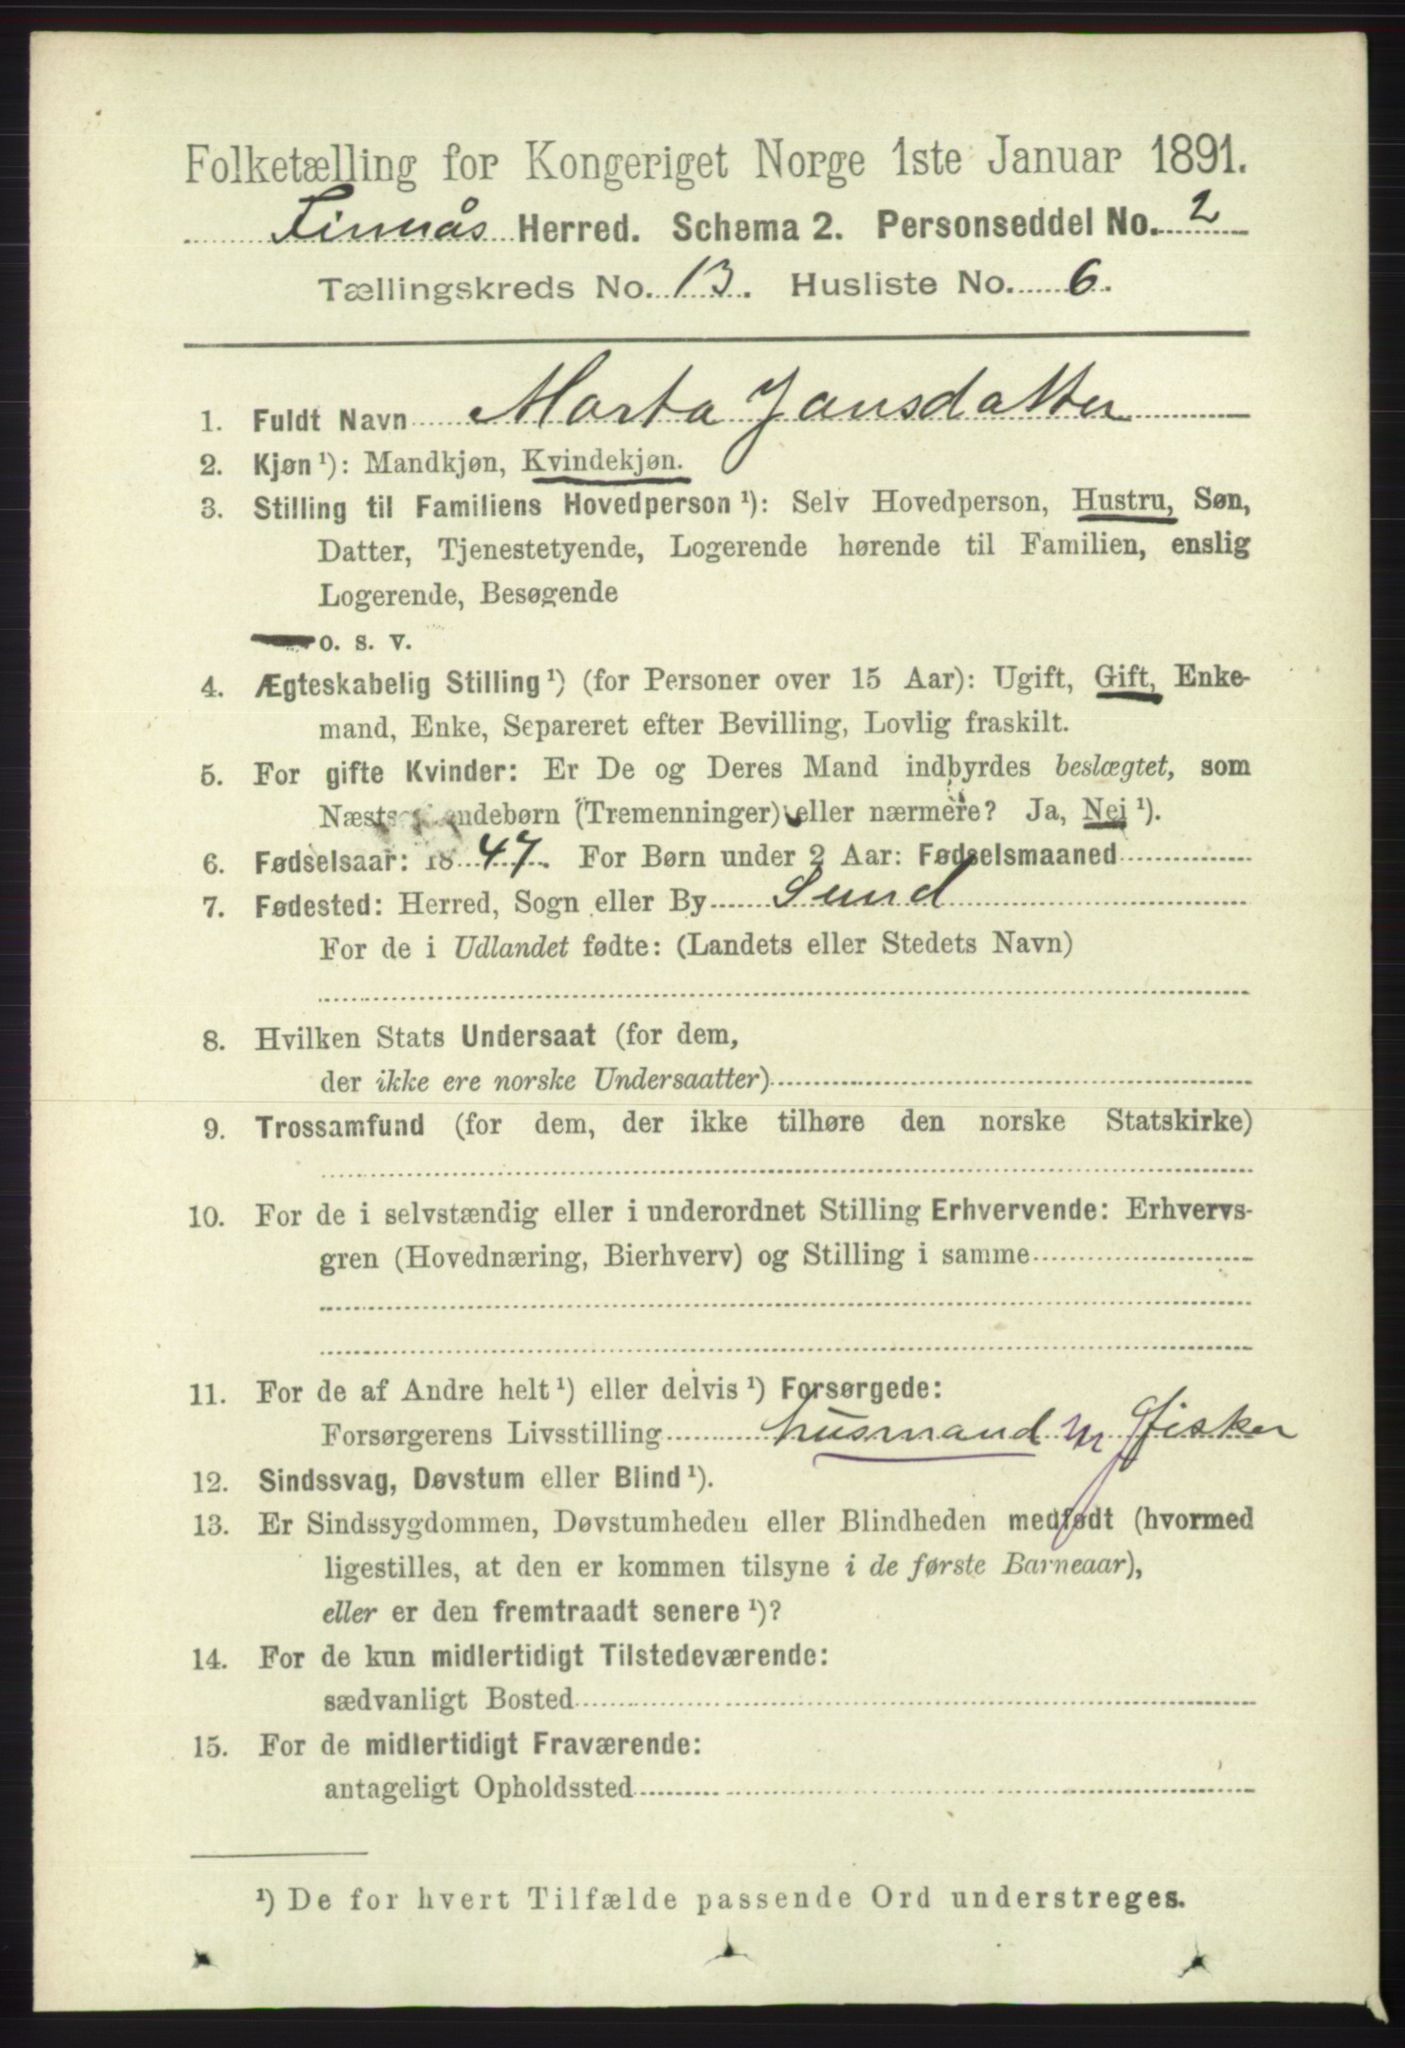 Folketælling for Kongeriget Norge 1ste Januar 1891.
Finnås Herred. Schema 2. Personseddel No. 2
Tællingskreds No. 13. Husliste No. 6.
1. Fuldt Navn Marta Jansdatter
2. Kjøn ¹): Mandkjøn, Kvindekjøn.
3. Stilling til Familiens Hovedperson ¹): Selv Hovedperson, Hustru, Søn,
Datter, Tjenestetyende, Logerende hørende til Familien, enslig
Logerende, Besøgende
o. s. v.
4. Ægteskabelig Stilling ¹) (for Personer over 15 Aar): Ugift, Gift, Enke-
mand, Enke, Separeret efter Bevilling, Lovlig fraskilt.
5. For gifte Kvinder: Er De og Deres Mand indbyrdes beslægtet, som
Næstsøskendebørn (Tremenninger) eller nærmere? Ja, Nej ¹).
6. Fødselsaar: 1847. For Børn under 2 Aar: Fødselsmaaned
7. Fødested: Herred, Sogn eller By Sund
For de i Udlandet fødte: (Landets eller Stedets Navn)
8. Hvilken Stats Undersaat (for dem,
der ikke ere norske Undersaatter)
9. Trossamfund (for dem, der ikke tilhøre den norske Statskirke)
10. For de i selvstændig eller i underordnet Stilling Erhvervende: Erhvervs-
gren (Hovednæring, Bierhverv) og Stilling i samme
11. For de af Andre helt ¹) eller delvis ¹) Forsørgede:
Forsørgerens Livsstilling husmand fisker
12. Sindssvag, Døvstum eller Blind ¹).
13. Er Sindssygdommen, Døvstumheden eller Blindheden medfødt (hvormed
ligestilles, at den er kommen tilsyne i de første Barneaar),
eller er den fremtraadt senere ¹)?
14. For de kun midlertidigt Tilstedeværende:
sædvanligt Bosted
15. For de midlertidigt Fraværende:
antageligt Opholdssted
¹) De for hvert Tilfælde passende Ord understreges.